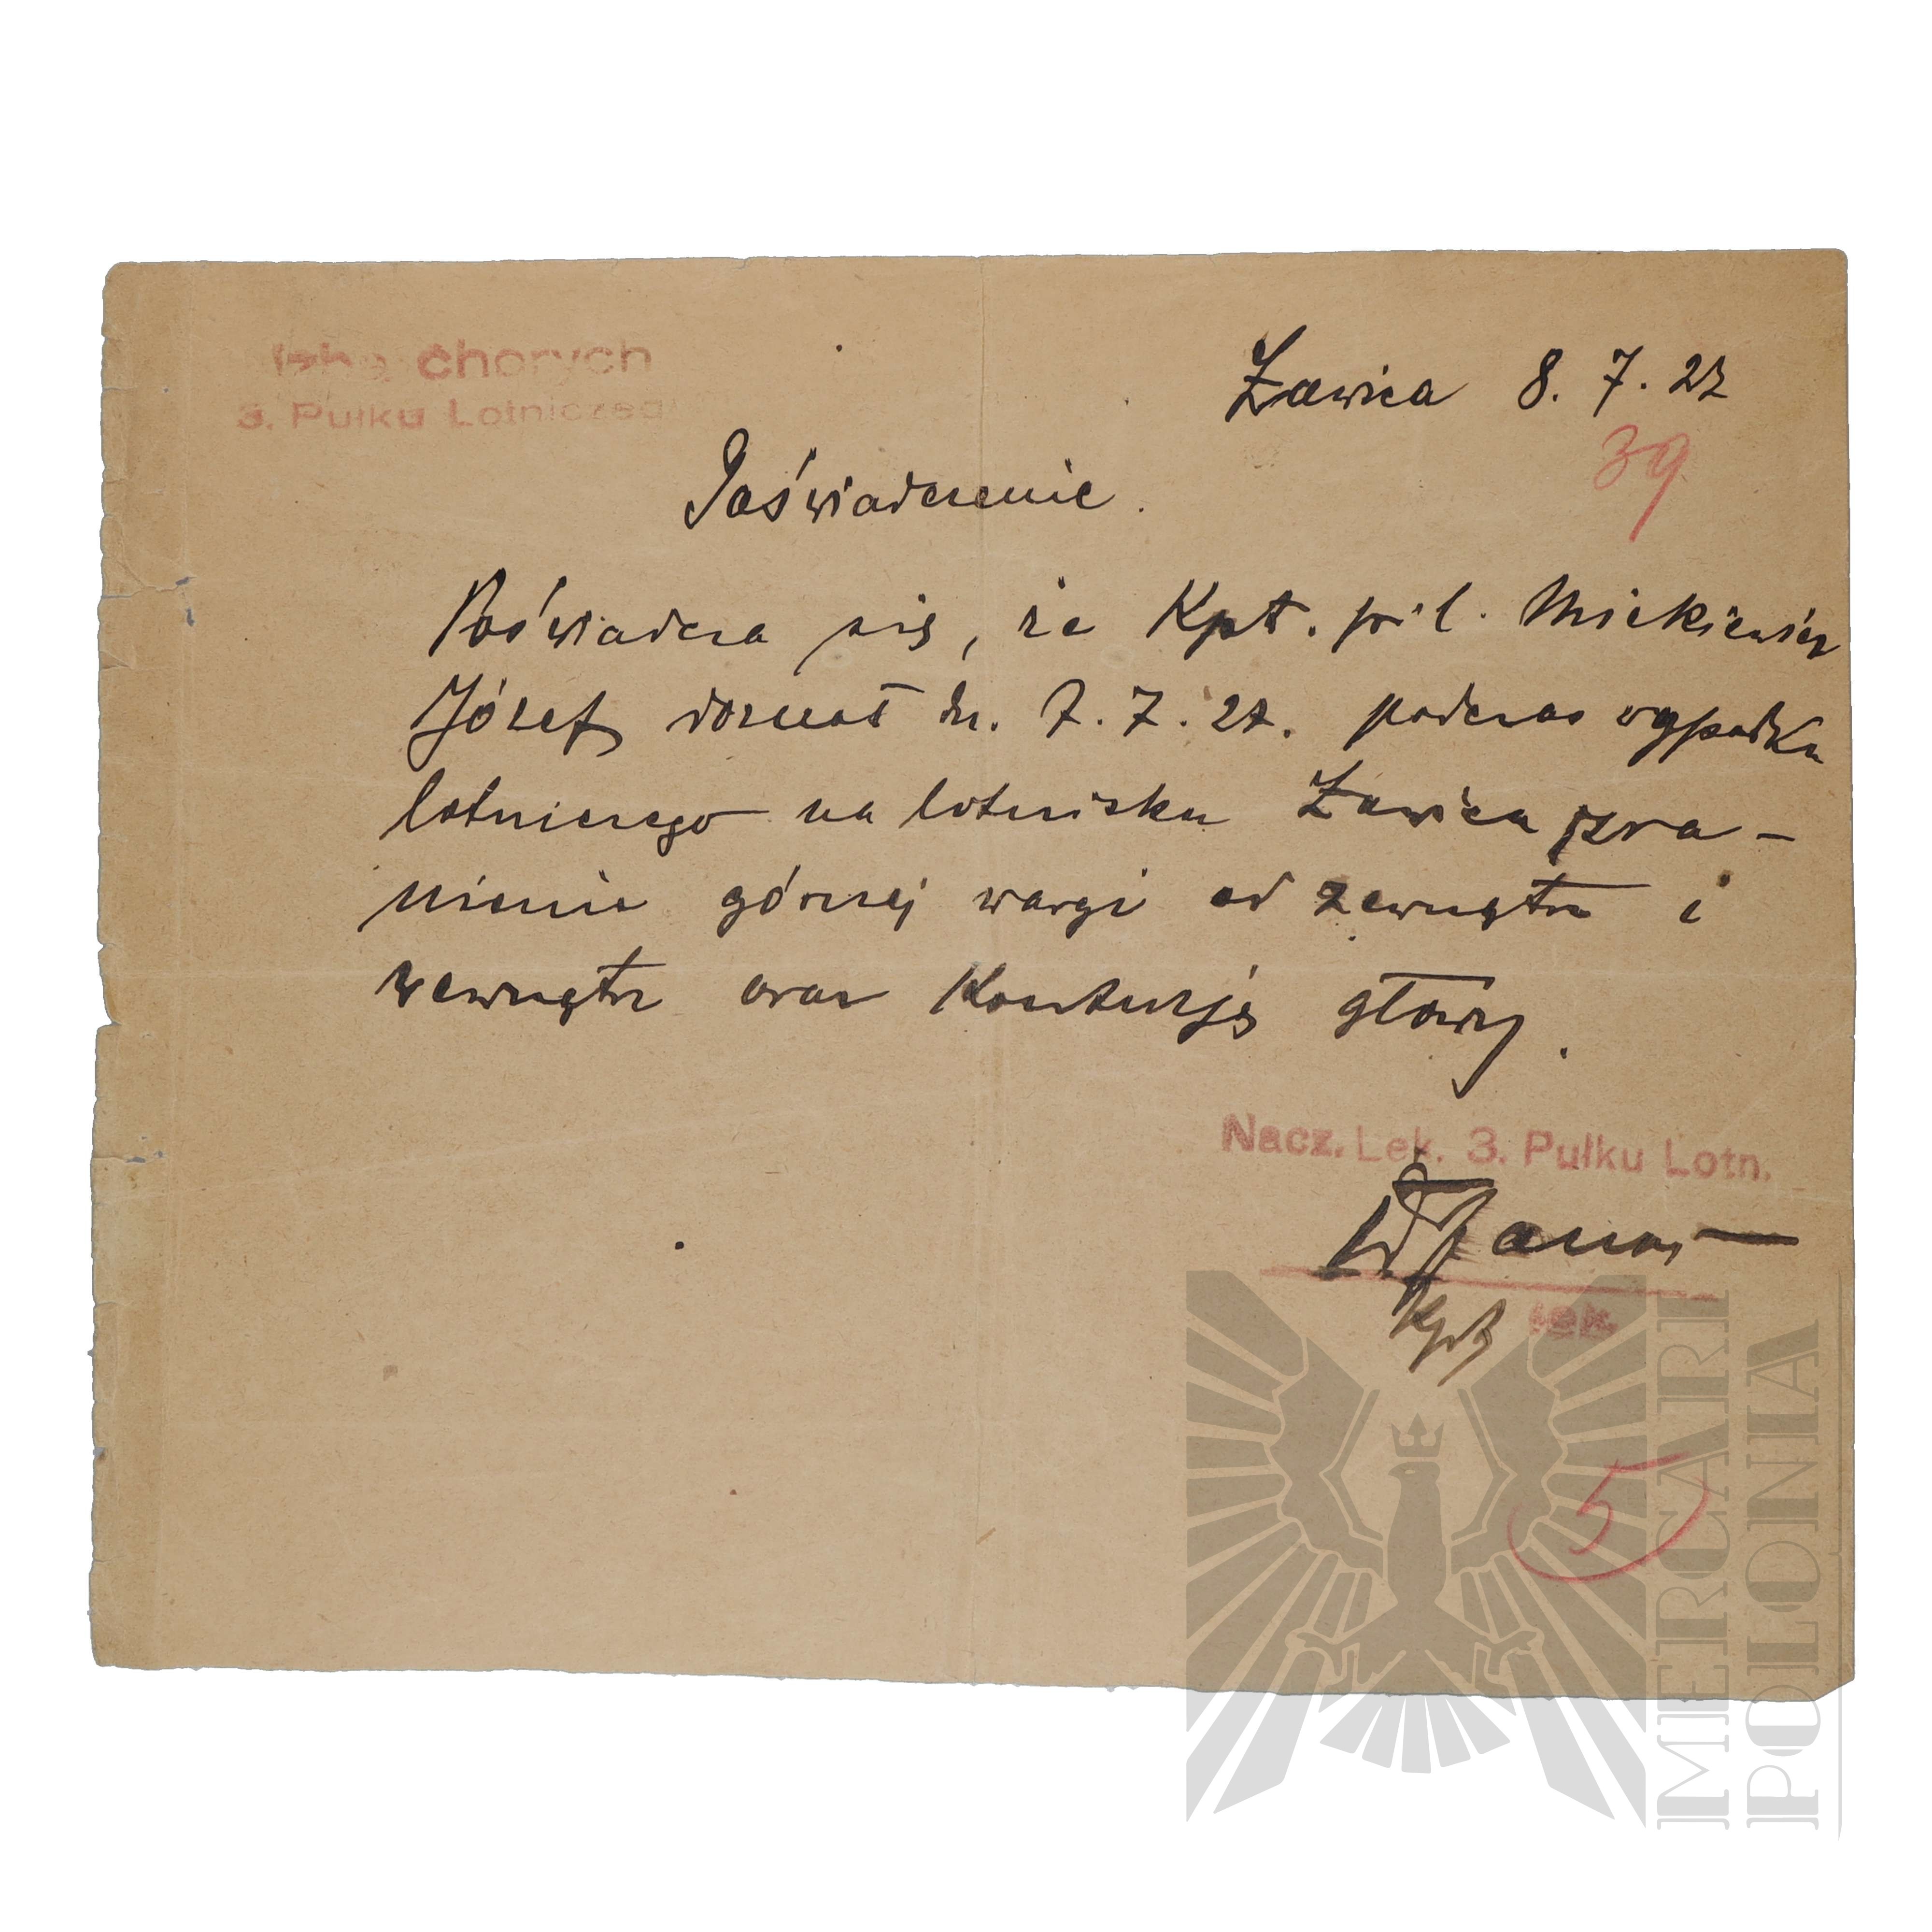 Izba chorych
3. Pułku Lotniczego
Ławica 8. 7. 27
39.
Poświadczenie.
Poświadcza się, że Kpt. pil. Mickiewicz
Józef doznał dn. 7. 7. 27. podczas wypadku
lotniczego na lotnisku Ławica zra-
nienie górnej wargi od zewnątrz i
wewnątrz oraz Kontuzję głowy.
Nacz. Lek. 3. Pułku Lotn.
Kpt. lek.
5
MERCARI
POLONIA